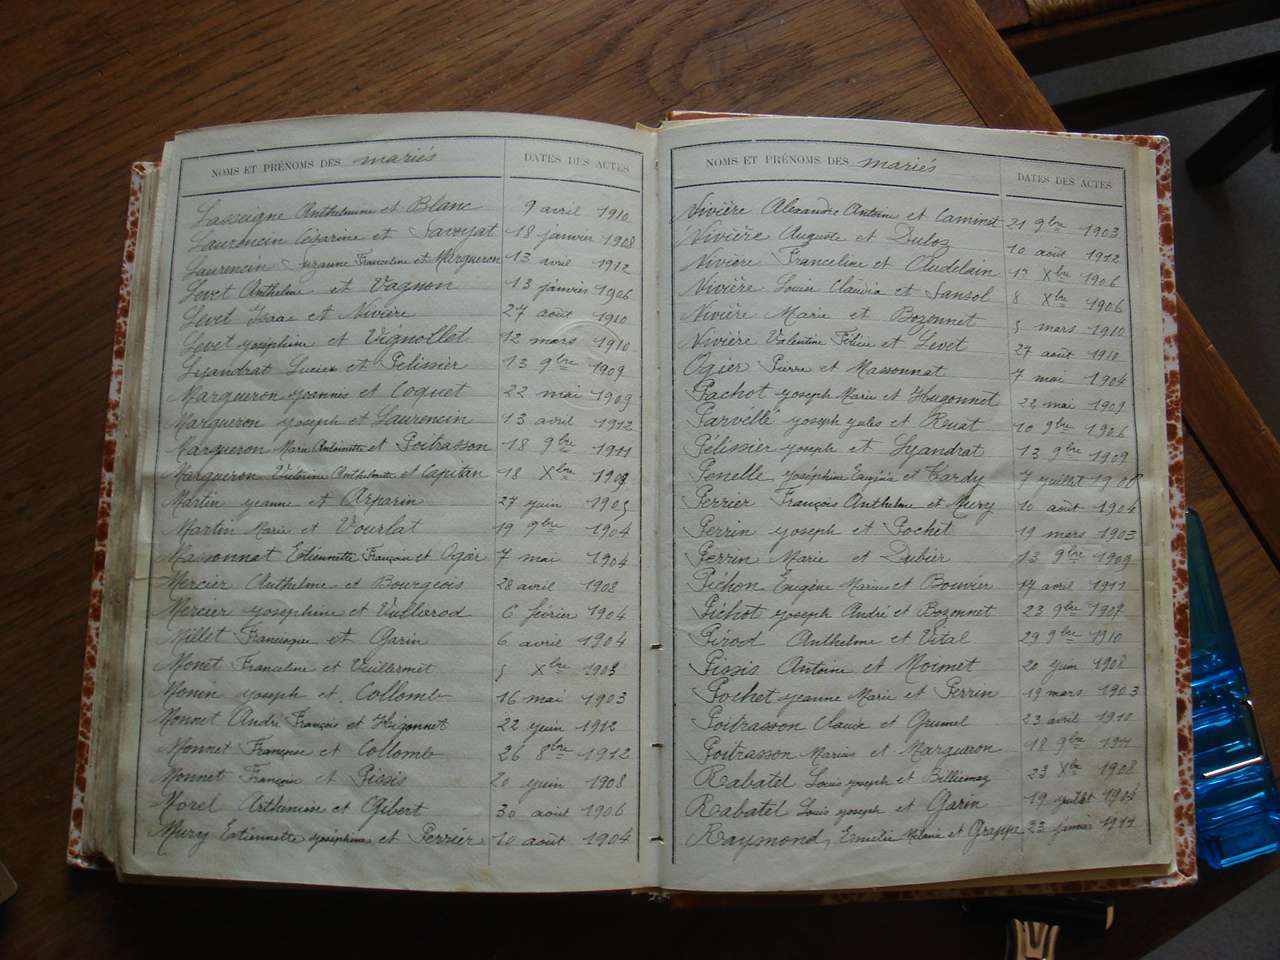 NOMS ET PRÉNOMS DES mariés DATES DES ACTES
Lasseigne Anthelmine et Blanc 9 avril 1910
Laurencin Césarine et Savoyat 18 janvier 1908
Laurencin Suzanne Franceline et Margueron 13 avril 1912
Levet Anthelme et Vagnon 13 janvier 1906
Levet Isaac et Nivière 27 août 1910
Levet Joséphine et Vignollet 12 mars 1910
Lyandrat Lucien et Pelissier 13 9bre 1909
Margueron Joannès et Coquet 22 mai 1909
Margueron Joseph et Laurencin 13 avril 1912
Margueron Marie Antoinette et Poitrasson 18 9bre 1911
Margueron Victorine Anthelmette et Capitan 18 Xbre 1909
Martin Jeanne et Arparin 27 juin 1905
Martin Marie et Vourlat 19 9bre 1904
Massonnat Etiennette Françoise et Ogier 7 mai 1904
Mercier Anthelme et Bourgeois 28 avril 1908
Mercier Joséphine et Vullierod 6 février 1904
Millet Françoise et Garin 6 avril 1904
Monet Franceline et Vuillermet 5 Xbre 1903
Monin Joseph et Collomb 16 mai 1903
Monnet André François et Higonnet 22 juin 1912
Monnet Françoise et Collomb 26 8bre 1912
Monnet Françoise et Pissis 20 juin 1908
Morel Arthémine et Gibert 30 août 1906
Mury Etiennette Joséphine et Perrier 10 août 1904
NOMS ET PRÉNOMS DES mariés DATES DES ACTES
Nivière Alexandre Antoine et Caminet 21 9bre 1903
Nivière Auguste et Duloz 10 août 1912
Nivière Franceline et Audelain 17 Xbre 1906
Nivière Louise Claudia et Sansol 8 Xbre 1906
Nivière Marie et Bozonnet 5 mars 1910
Nivière Valentine Félicie et Levet 27 août 1910
Ogier Pierre et Massonnat 7 mai 1904
Pachot Joseph Marie et Hugonnet 22 mai 1909
Joseph Jules et 10 9bre 1906
Pélissier Joseph et Lyandrat 13 9bre 1909
Penelle Joséphine Eugénie et Tardy 7 juillet 1906
Perrier François Anthelme et Mury 10 août 1904
Perrin Joseph et Pochet 19 mars 1903
Perrin Marie et Dubier 13 9bre 1909
Pichon Eugène Marius et Bouvier 17 avril 1911
Pichot Joseph André et Bozonnet 23 9bre 1907
Pirod Anthelme et Vital 29 9bre 1910
Pissis Antoine et Monnet 20 juin 1908
Pochet Jeanne Marie et Perrin 19 mars 1903
Poitrasson Claude et Grumel 23 avril 1910
Poitrasson Marius et Margueron 18 9bre 1911
Rabatel Louis Joseph et Billiemaz 23 Xbre 1908
Rabatel Louis Joseph et Garin 19 juillet 1904
Raymond, Emélie Mélanie et Grappe 23 janvier 1911